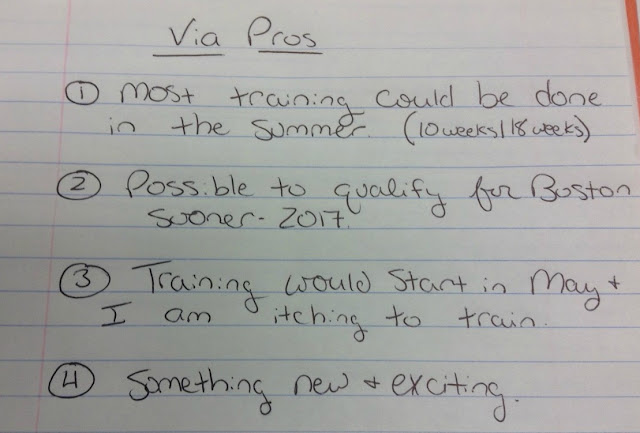 Via Pros
① Most training could be done
in the summer. (10 weeks/18 weeks)
② Possible to qualify for Boston
sooner - 2017.
③ Training would start in May +
I am itching to train.
④ Something new + exciting.